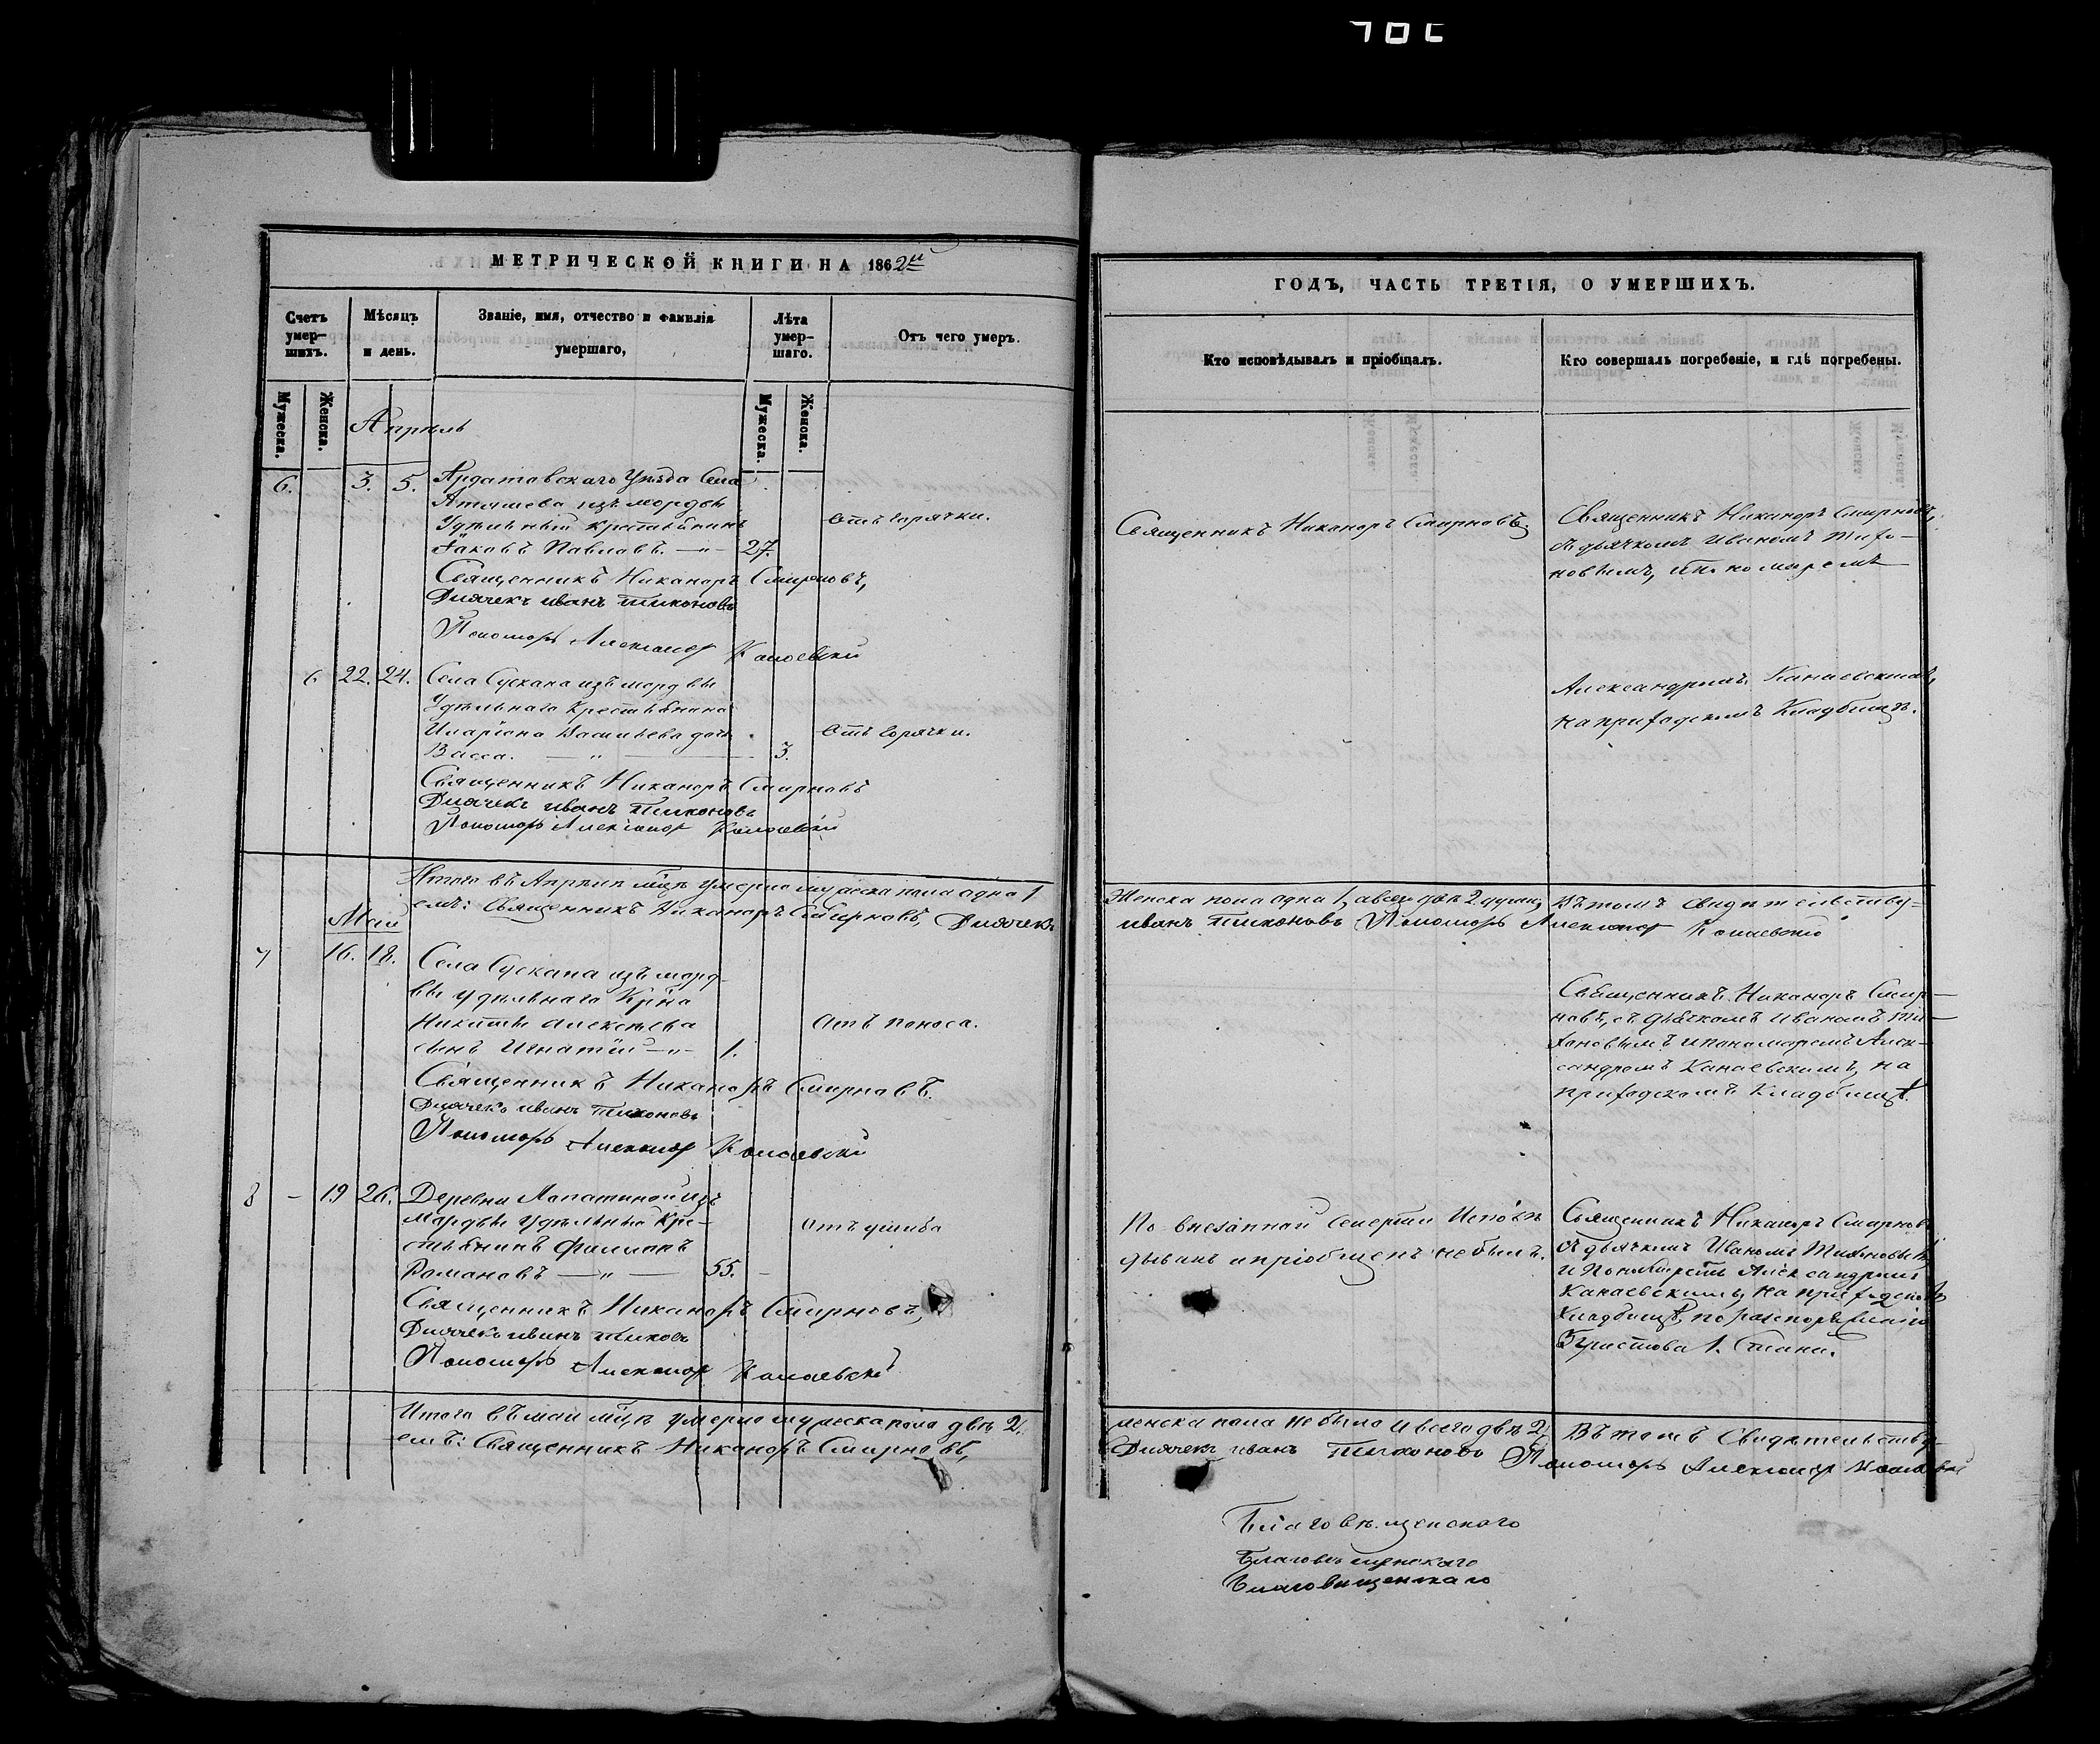 МЕТРИЧЕСКОЙ КНИГИ НА 1862й
Счетъ умер-шихъ.
Мѣсяцъ и день.
Званіе, имя, отчество и фамилія умершаго,
Лѣта умер-шаго.
Отъ чего умеръ.
Мужеска.
Женска.
Мужеска.
Женска.
Апрѣль
6. 3. 5. Ардатовскаго Уѣзда Села
Атяшева изъ мордвы
Удѣльный крестьянинъ
Іаковъ Павловъ. —"— 27.
Отъ горячки.
Священникъ Никаноръ Смирновъ,
Дьячекъ иванъ тихоновъ
Пономарь Александръ Канаевскій
6 22. 24. Села Сускана изъ мордвы
Удѣльнаго Крестьянина
Иларіона Васильева дочь
Васса. —"— 3.
Отъ горячки.
Священникъ Никаноръ Смирновъ
Дьячекъ иванъ тихоновъ
Пономарь Александръ Канаевскій
Итого въ Апрѣлѣ мцѣ умерло мужеска пола одна 1
емъ: Священникъ Никаноръ Смирновъ, Дьячекъ
Май
7 16. 18. Села Сускана изъ морд-
вы удѣльнаго Крнна
Никиты Алексѣева
сынъ Игнатій —"— 1.
Отъ поноса.
Священникъ Никаноръ Смирновъ.
Дьячекъ иванъ тихоновъ
Пономарь Александръ Канаевскій
8 — 19 26. Деревни Лопатиной изъ
мордвы удѣльный Кре-
стьянинъ Филимонъ
Романовъ —"— 55. —
Отъ ушиба
Священникъ Никаноръ Смирновъ,
Дьячекъ иванъ тиховъ
Пономарь Александръ Канаевскій
Итого въ маи мцѣ умерло мужеска пола двѣ 2.
емъ: Священникъ Никаноръ Смирновъ,
ГОДЪ, ЧАСТЬ ТРЕТІЯ, О УМЕРШИХЪ.
Кто исповѣдывалъ и пріобщалъ.
Кто совершалъ погребеніе, и гдѣ погребены.
Священникъ Никаноръ Смирновъ.
Священникъ Никаноръ Смирновъ,
съ дьячкомъ Иваномъ Тихо-
новымъ, и пономаремъ
Александромъ Канаевскимъ,
на приходскомъ Кладбищѣ.
Женска пола одна 1, а всего двѣ 2 души, Въ томъ свидѣтельству-
иванъ тихоновъ Пономарь Александръ Канаевскій
Священникъ Никаноръ Смир-
новъ, съ дьячкомъ Иваномъ Ти-
хоновымъ и пономаремъ Алек-
сандромъ Канаевскимъ, на
приходскомъ Кладбищѣ.
По внезапной смерти Исповѣ-
дыванъ и пріобщенъ не былъ.
Священникъ Никаноръ Смирновъ
съ дьячкомъ Иваномъ Тихоновымъ
и Пономаремъ Александромъ
Канаевскимъ, на приходскомъ
Кладбищѣ, по распоряженію
Пристава 1. Стана.
женска пола не было и всего двѣ 2. Въ томъ Свидѣтельству-
Дьячекъ иванъ тихоновъ Пономарь Александръ Канаевскій
Благовѣщенскаго
Благовѣщенскаго
Благовѣщенскаго